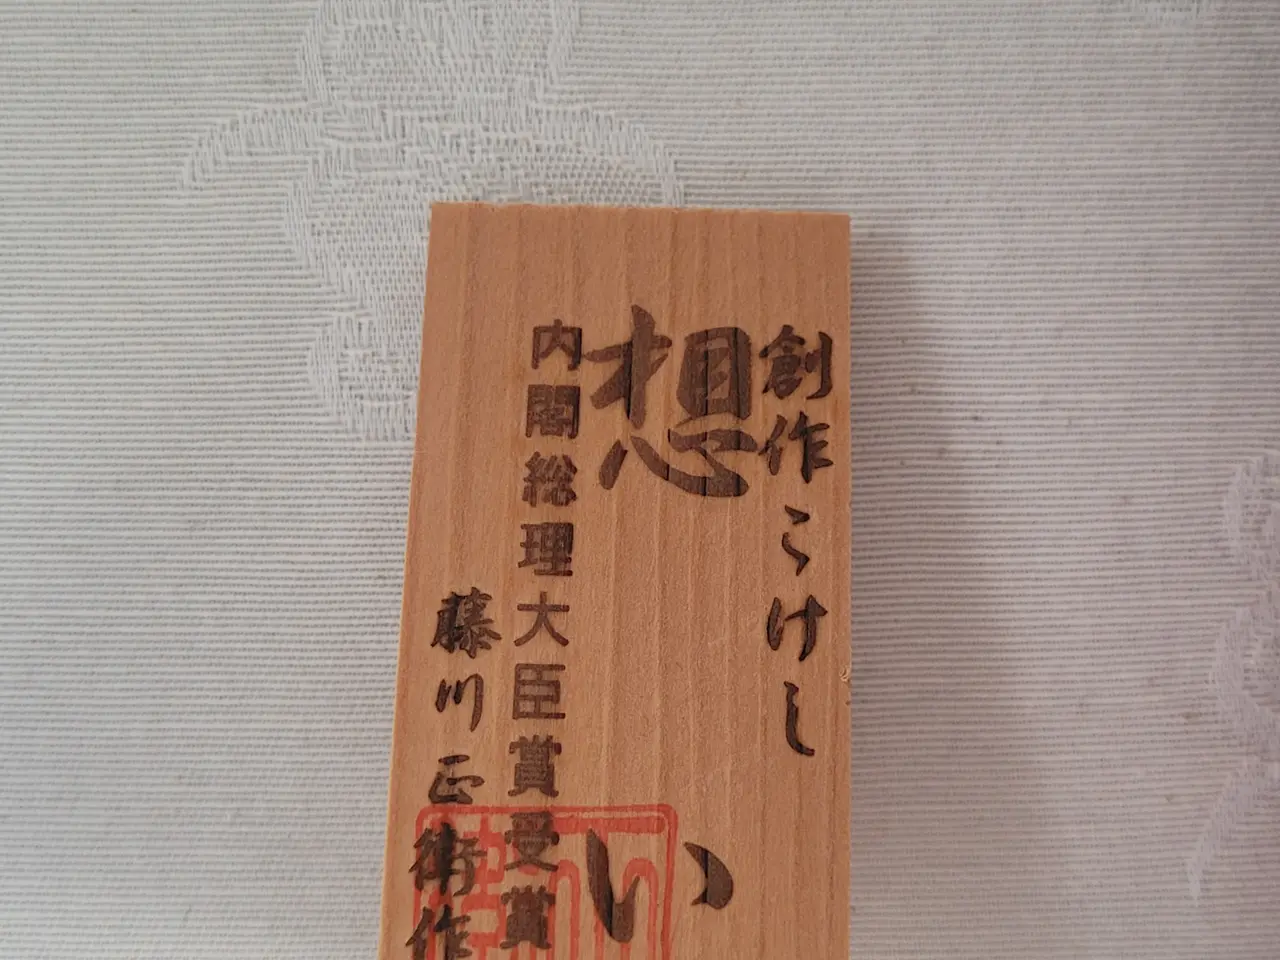 創作こけし
想い
内閣総理大臣賞受賞
藤川正衛作